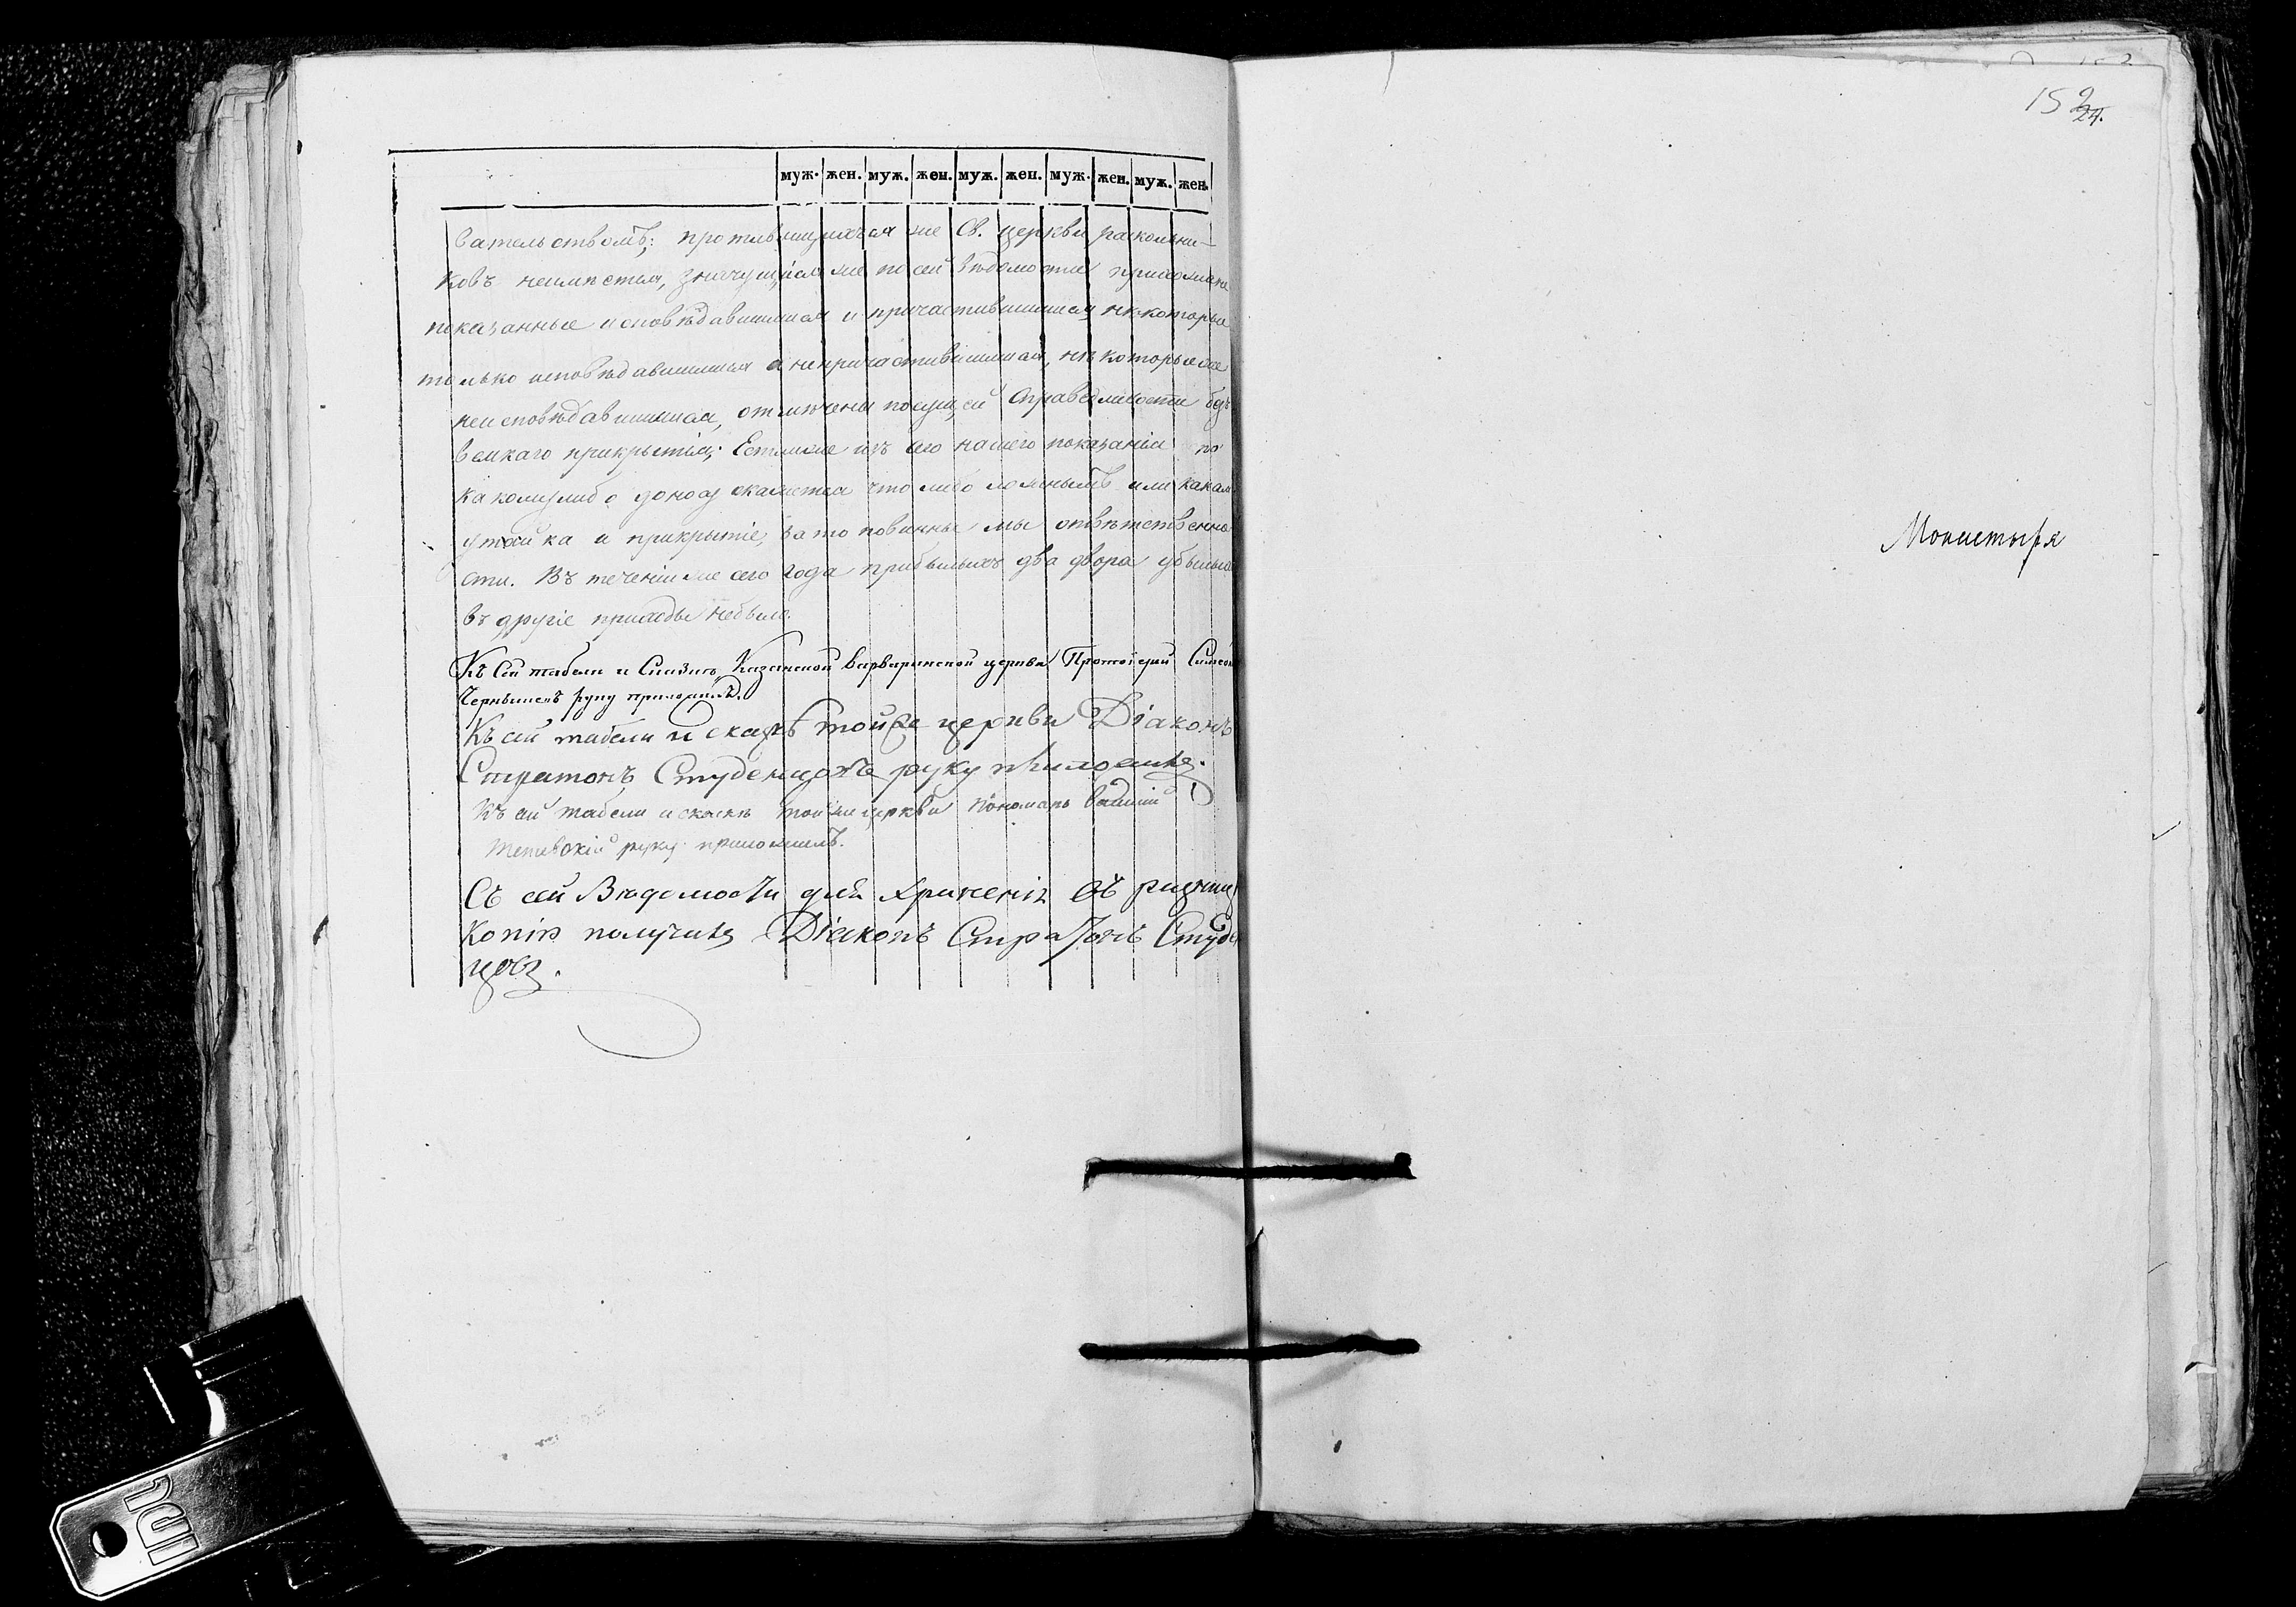 муж. жен. муж. жен. муж. жен. муж. жен. муж. жен.
вательствомъ; противящихся же Св. церкви раскольни-
ковъ неимѣется, значущіяся же по сей вѣдомости прихожане
показанные исповѣдавшимися и причастившимися, некоторые
только исповѣдавшимися а непричастившимися, нѣкоторые же
неисповѣдавшимися, отмѣчены посущей справедливости безъ
всякаго прикрытія; Естьлиже изъ сего нашего показанія по
какомулибо доносу окажется что либо ложнымъ или какая
утайка и прикрытіе, зато повинны мы отвѣтственно
сти. Въ теченіи же сего года прибылыхъ два двора убылыхъ
въ другіе приходы небыло.
Къ Сей табели и Сказкѣ Казанской Варваринской церкви Протоіерей Симеон
Чернышевъ руку приложилъ.
Къ сей табели и сказкѣ тойже церкви Діаконъ
Стратонъ Студенцовъ руку приложилъ.
Къ сей табели и сказкѣ тойже церкви Пономарь
руку приложилъ.
Съ сей Вѣдомости для храненія въ ризницѣ
Копію получилъ Діаконъ Стратонъ Студен
цовъ.
152
24.
Монастыря